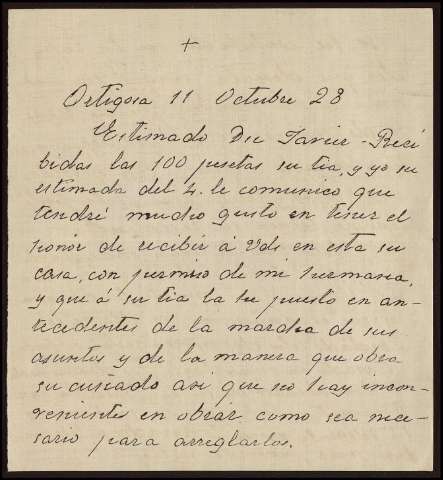 +
Ortigosa 11 Octubre 28
Estimado Dn Javier - Reci
bidas las 100 pesetas su tia, y yo su
estimada del 4. le comunico que
tendré mucho gusto en tener el
honor de recibir á Vds en esta su
casa, con permiso de mi hermana,
y que á su tia la he puesto en an-
tecedentes de la marcha de sus
asuntos y de la manera que obra
su cuñado asi que no hay incon-
veniente en obrar como sea nece-
sario para arreglarlos.